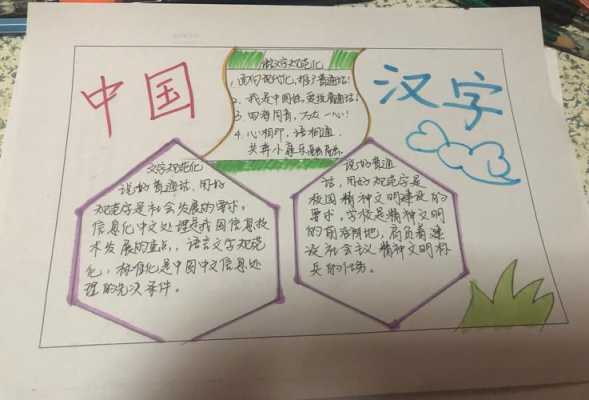 中国
汉字
文字规范化
1、面向现代化,推广普通话!
2、我是中国娃,爱说普通话!
3、四海同音,万众一心!
4、心相印,语相通,
共奔小康乐融融
文字规范化
说好普通话、用好
规范字是社会发展的要求,
信息化中文处理是我国信息技
术发展的重点,语言文字规范
化,标准化是中国中文信息处
理的先决条件。
说好普通
话,用好规范字是
我国精神文明建设的
要求,学校是精神文明
的前沿阵地,肩负着建
设社会主义精神文明标
兵的任务。